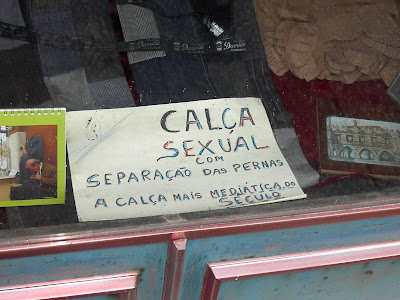 CALÇA
SEXUAL
COM
SEPARAÇÃO DAS PERNAS
A CALÇA MAIS MEDIÁTICA DO
SÉCULO